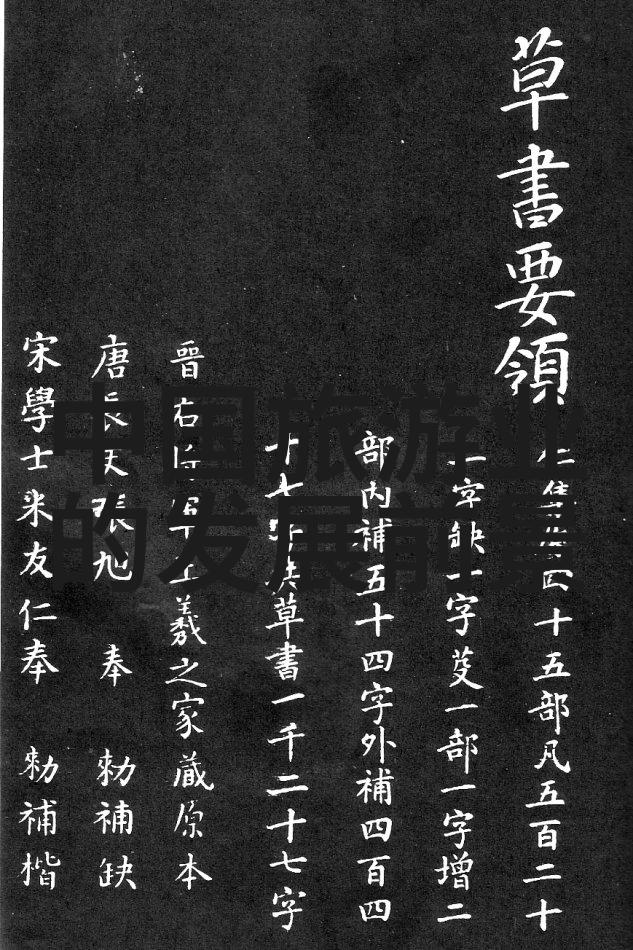 草書要領
集四十五部凡五百二十
一字缺一字芟一部一字增二
部内補五十四字外補四百四
十七字共草書一千二十七字
晋右將軍王羲之家藏原本
唐長史張旭 奉 勑補缺
宋學士米友仁奉 勑補楷
中国旅游业
的发展前景